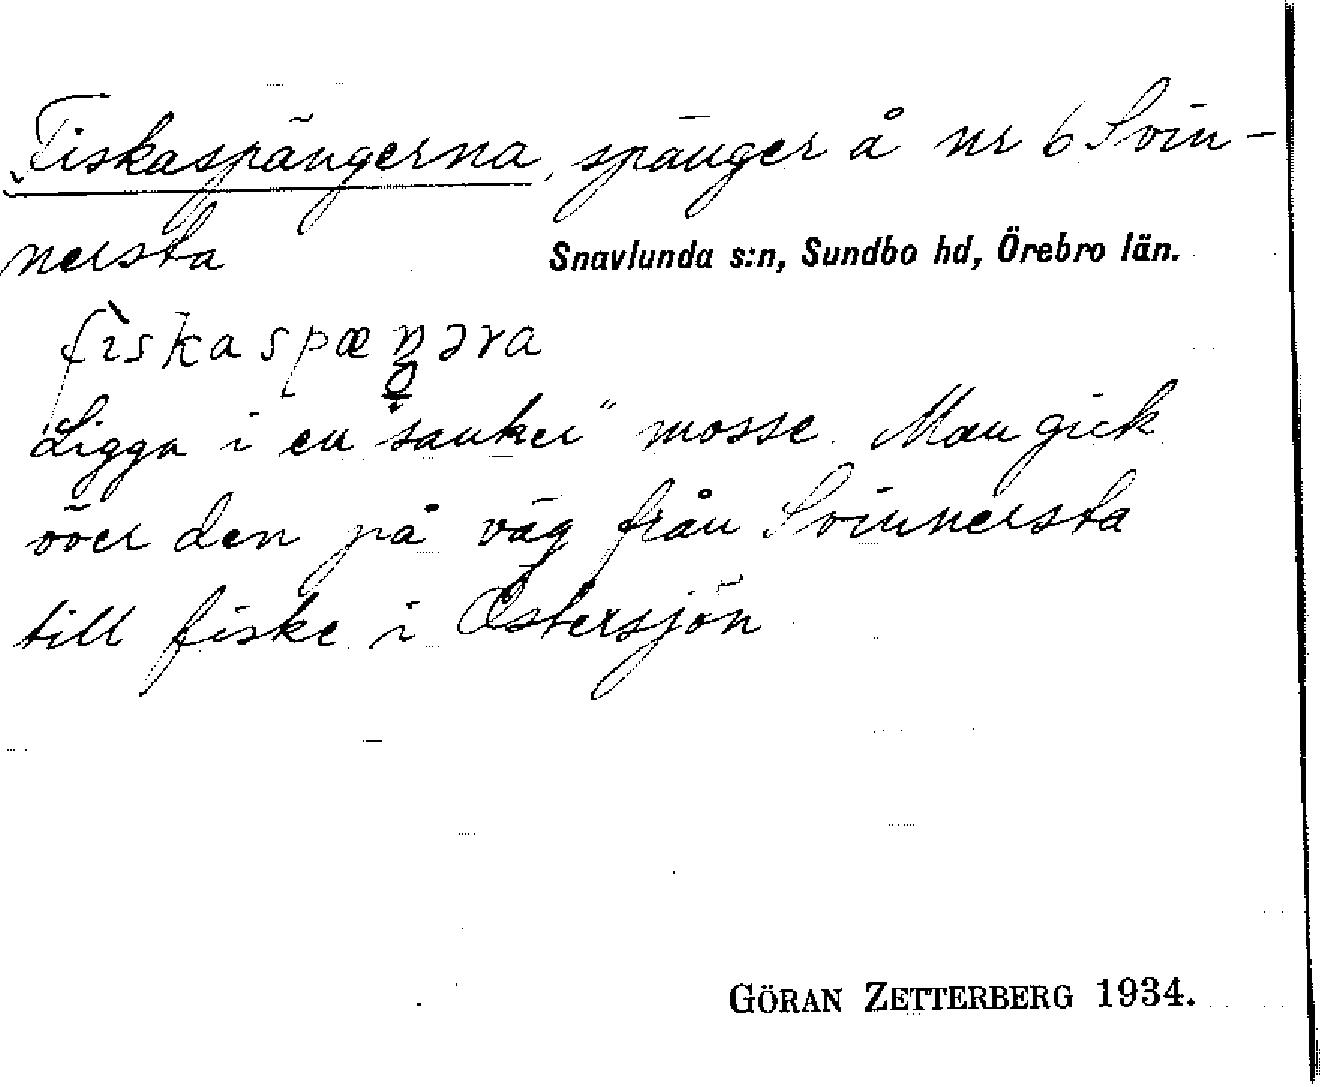 Fiskaspängerna, spänger å nr 6 Svin-
nersta Snavlunda s:n, Sundbo hd, Örebro län.
fìskaspæŋəra
Ligga i en "sanker" mosse. Man gick
över den på väg från Svinnersta
till fiske i Östersjön
GÖRAN ZETTERBERG 1934.